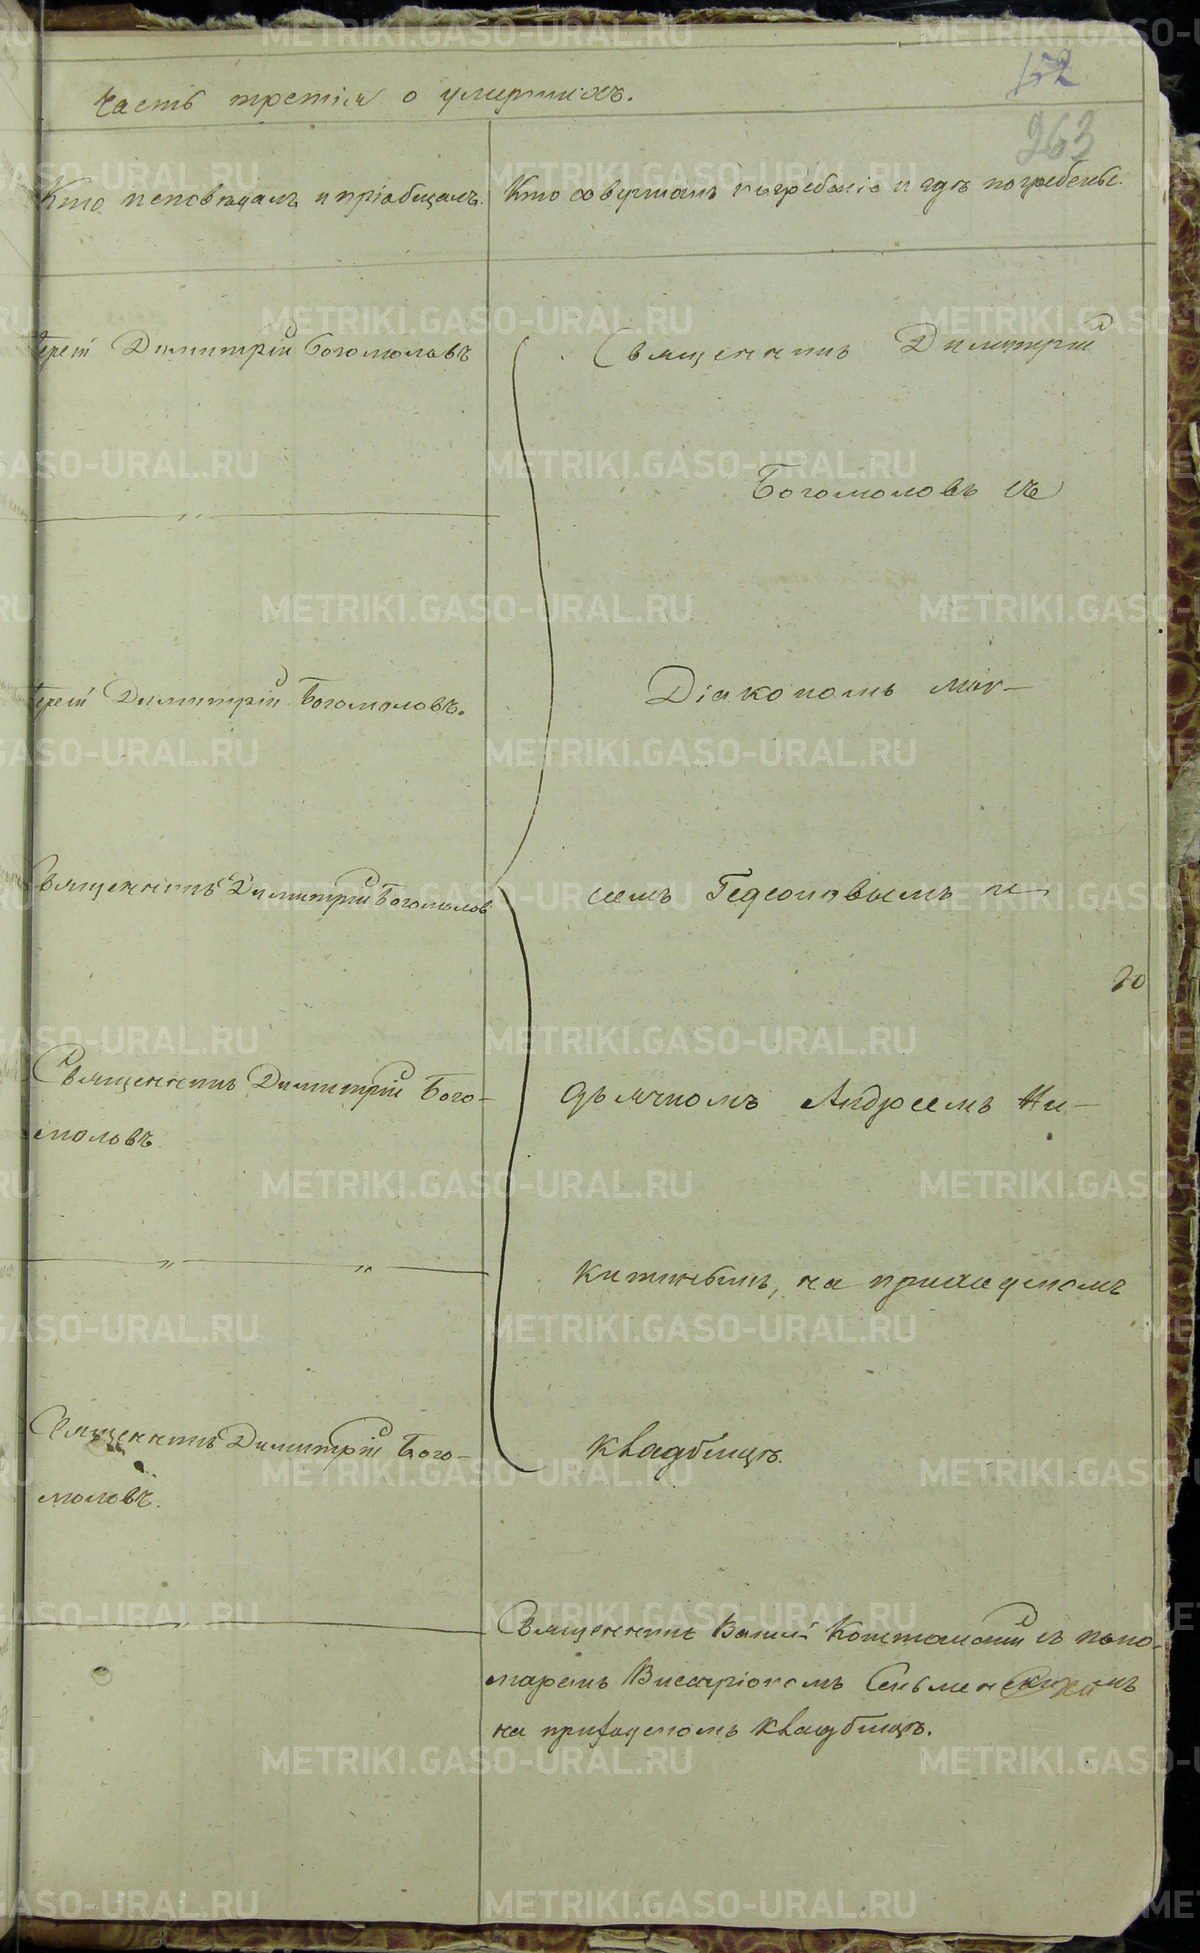 152
Часть третія о умершихъ.
263
Кто исповѣдалъ и пріобщалъ.
Кто совершалъ погребеніе и гдѣ погребены.
Іерей Димитрій Богомоловъ
Священникъ Димитрій
Богомоловъ съ
Іерей Димитрій Богомоловъ.
Діакономъ
Священникъ Димитрій Богомолов
Гедеоновымъ и
20
Священникъ Димитрій Бого-
моловъ.
дьячкомъ Андреемъ Ни-
китинымъ, на приходскомъ
Священникъ Димитрій Бого-
моловъ.
кладбищѣ.
Священникъ съ поно-
маремъ Виссаріономъ
на приходскомъ кладбищѣ.
METRIKI.GASO-URAL.RU